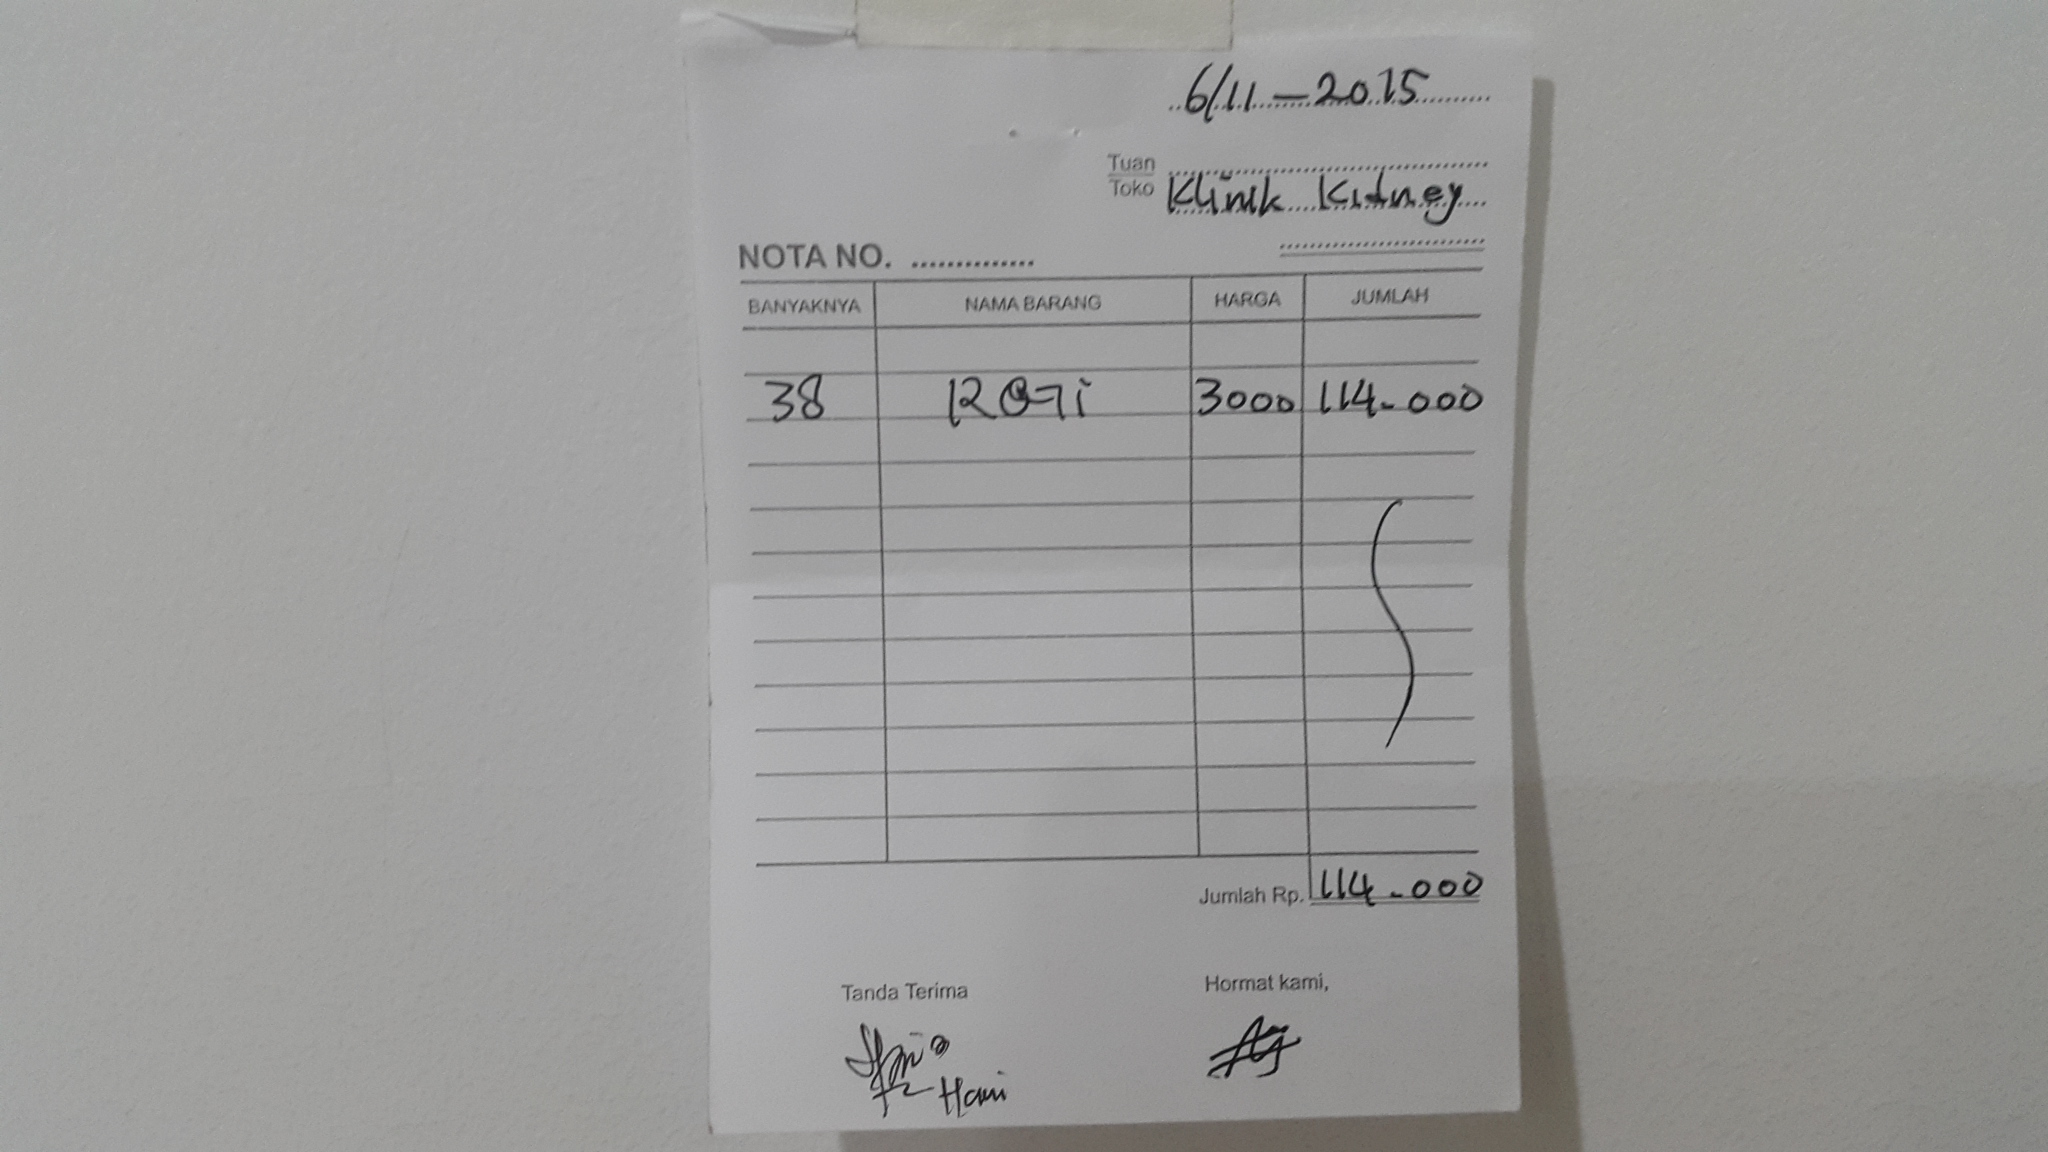 6/11-2015
Tuan
Toko Klinik Kidney
NOTA NO. ..............
BANYAKNYA NAMA BARANG HARGA JUMLAH
38 ROTi 3000 114-000
Jumlah Rp. 114-000
Tanda Terima Hormat kami,